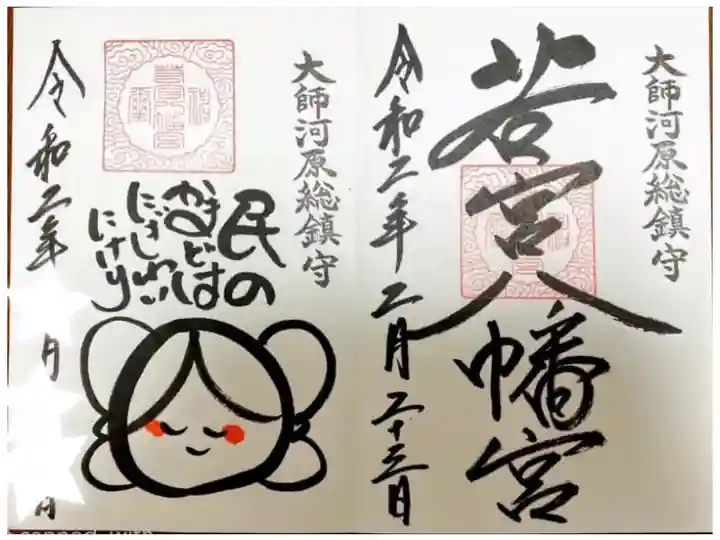 大師河原総鎮守
若宮八幡宮
令和二年二月二十三日
大師河原総鎮守
民の
かまどは
にぎわい
にけり
令和二年
月